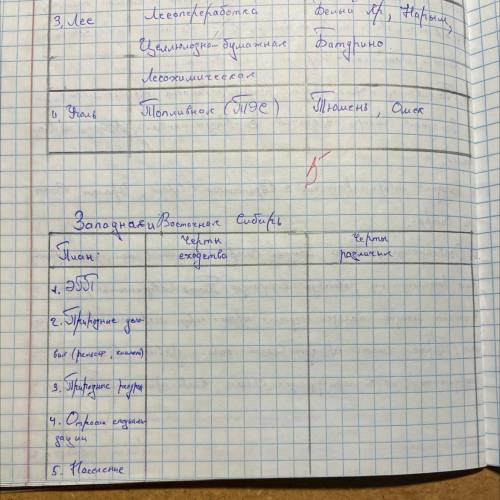 3. Лес Лесопереработка Белый Яр, Нарым,
Целлюлозно-бумажная Батурино
Лесохимическая
4. Уголь Топливная (ТЭС) Тюмень, Омск
5
Западная и Восточная Сибирь
План: Черты сходства Черты различия
1. ЭГП
2. Природные усло-
вия (рельеф, климат)
3. Природные ресурсы
4. Отрасли специали-
зации
5. Население